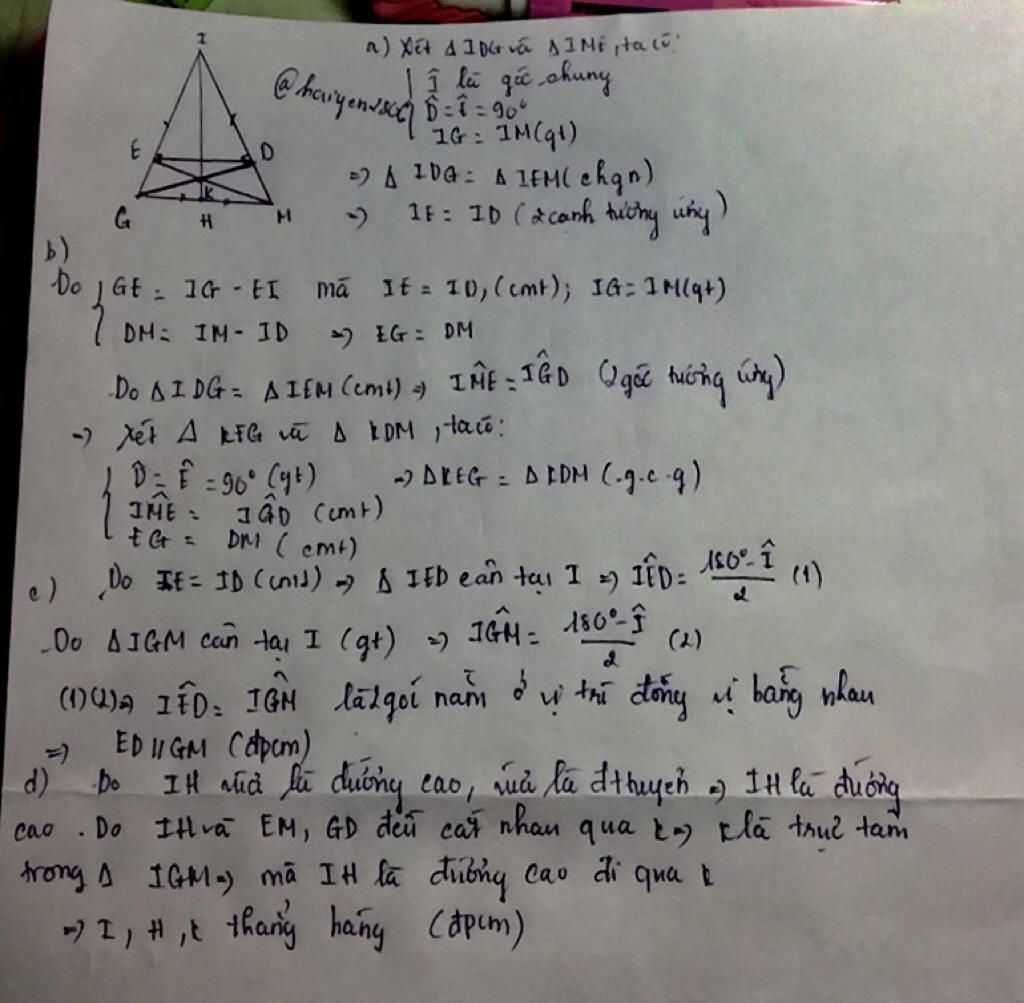 I
E
D
K
G
H
M
a) Xét Δ IDG và Δ IME, ta có:
Î là góc chung
D̂ = Î = 90°
IG = IM (gt)
=> Δ IDG = Δ IEM (chgn)
=> IE = ID (2 cạnh tương ứng)
b)
Do GE = IG - EI mà IE = ID, (cmt); IG = IM (gt)
DM = IM - ID => EG = DM
Do Δ IDG = Δ IEM (cmt) => IM̂E = IĜD (2 góc tương ứng)
=> Xét Δ KEG và Δ KDM, ta có:
D̂ = Ê = 90° (gt) => Δ KEG = Δ KDM (.g.c.g)
IM̂E = IĜD (cmt)
EG = DM (cmt)
c) Do IE = ID (cmt) => Δ IED cân tại I => IÊD = (180° - Î)/2 (1)
Do Δ IGM cân tại I (gt) => IĜM = (180° - Î)/2 (2)
(1)(2) => IÊD = IĜM là 2 gói nằm ở vị trí đồng vị bằng nhau
=> ED // GM (đpcm)
d) Do IH vừa là đường cao, vừa là đ thuyến => IH là đường
cao. Do IH và EM, GD đều cắt nhau qua K => K là trực tâm
trong Δ IGM => mà IH là đường cao đi qua K
=> I, H, K thẳng hàng (đpcm)